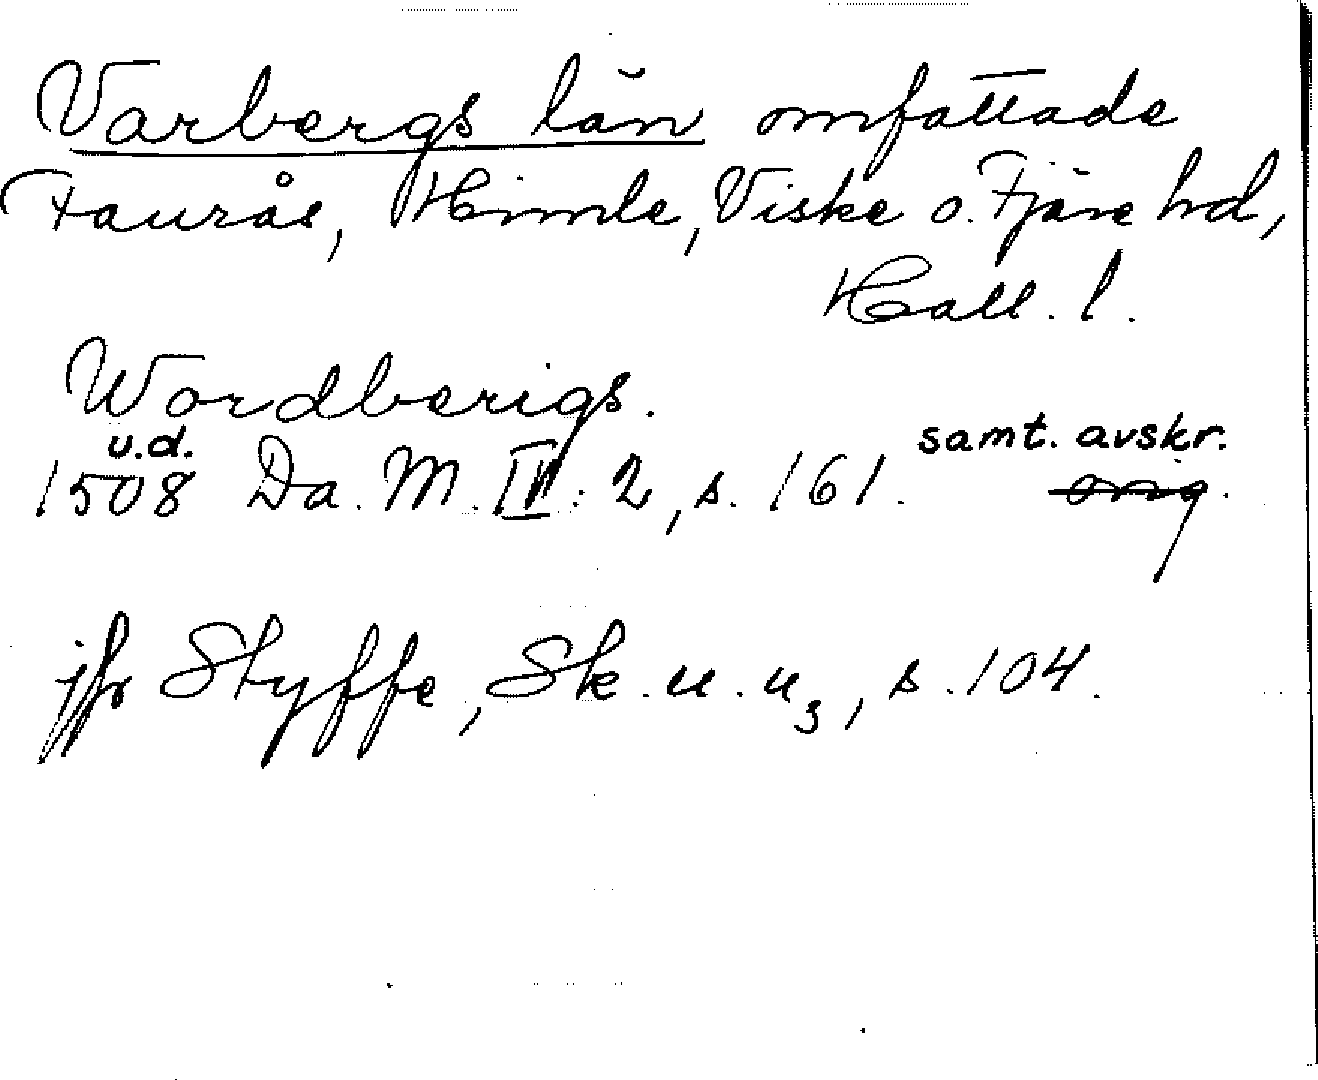 Varbergs län omfattade
Faurås, Himle, Viske o. Fjäre hd,
Hall. l.
Wordberigs.
u.d. samt. avskr.
1508 Da. M. IV: 2, s. 161. orig.
jfr Styffe, Sk. u. u3, s. 104.